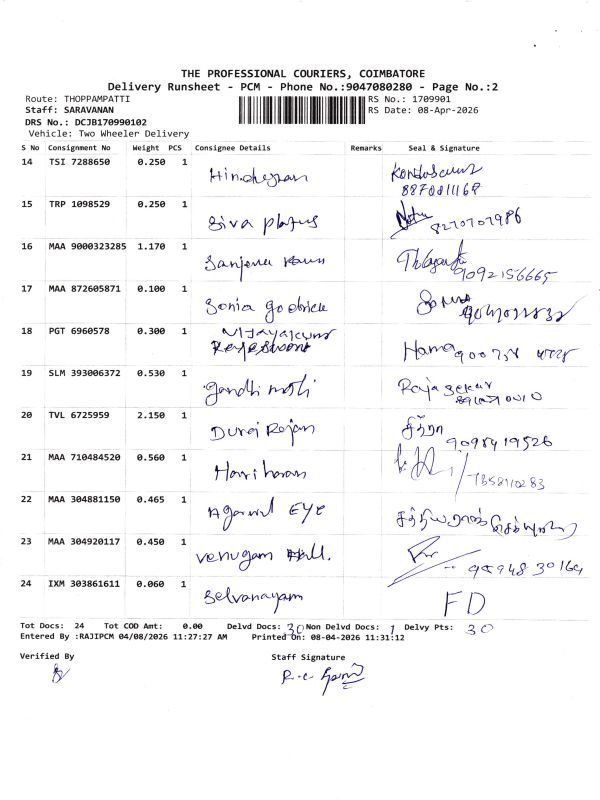 THE PROFESSIONAL COURIERS, COIMBATORE
Delivery Runsheet - PCM - Phone No.:9047080280 - Page No.:2
Route: THOPPAMPATTI RS No.: 1709901
Staff: SARAVANAN RS Date: 08-Apr-2026
DRS No.: DCJB170990102
Vehicle: Two Wheeler Delivery
S No Consignment No Weight PCS Consignee Details Remarks Seal & Signature
14 TSI 7288650 0.250 1
15 TRP 1098529 0.250 1 Siva 8270707986
16 MAA 9000323285 1.170 1 9092156665
17 MAA 872605871 0.100 1 Sonia
18 PGT 6960578 0.300 1 Vijayakumar
19 SLM 393006372 0.530 1 Gandhi Rajasekar
20 TVL 6725959 2.150 1 Durai Rajan சித்ரா 9098419526
21 MAA 710484520 0.560 1 Hariharan 7358110283
22 MAA 304881150 0.465 1 Agarwal EYE
23 MAA 304920117 0.450 1 Venugam
24 IXM 303861611 0.060 1 Selvanayam FD
Tot Docs: 24 Tot COD Amt: 0.00 Delvd Docs: 30 Non Delvd Docs: 1 Delvy Pts: 30
Entered By :RAJIPCM 04/08/2026 11:27:27 AM Printed On: 08-04-2026 11:31:12
Verified By Staff Signature